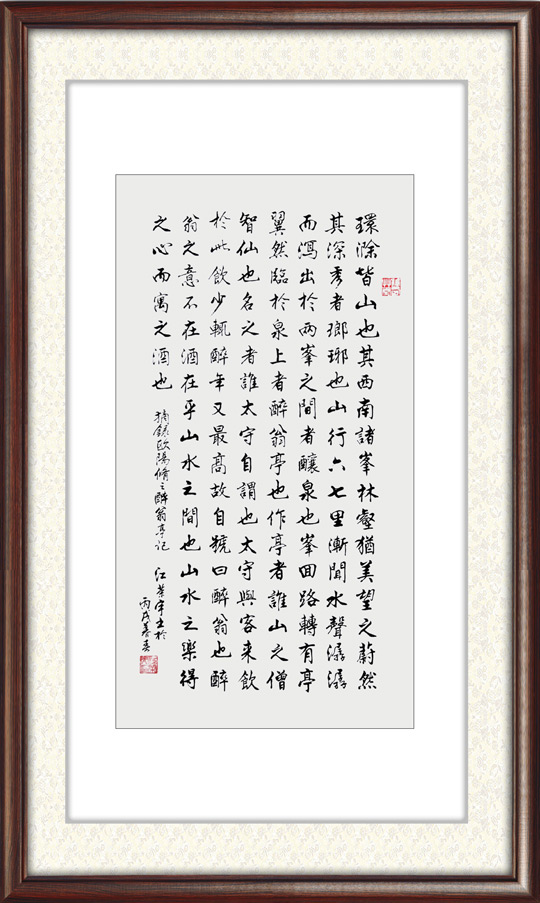 環滁皆山也其西南諸峯林壑猶美望之蔚然
其深秀者瑯琊也山行六七里漸聞水聲潺潺
而瀉出於兩峯之間者釀泉也峯回路轉有亭
翼然臨於泉上者醉翁亭也作亭者誰山之僧
智仙也名之者誰太守自謂也太守與客來飲
於此飲少輒醉年又最高故自號曰醉翁也醉
翁之意不在酒在乎山水之間也山水之樂得
之心而寓之酒也 摘錄歐陽脩之醉翁亭記 江宇書於
丙戌暮春